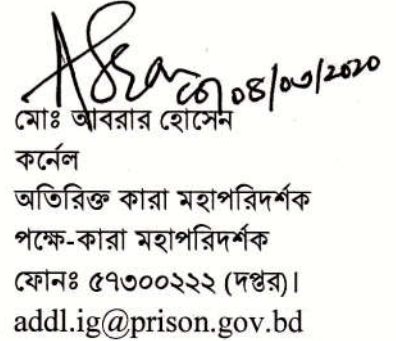 ০৪/০৩/২০২০
মোঃ আবরার হোসেন
কর্নেল
অতিরিক্ত কারা মহাপরিদর্শক
পক্ষে-কারা মহাপরিদর্শক
ফোনঃ ৫৭৩০০২২২ (দপ্তর)।
addl.ig@prison.gov.bd